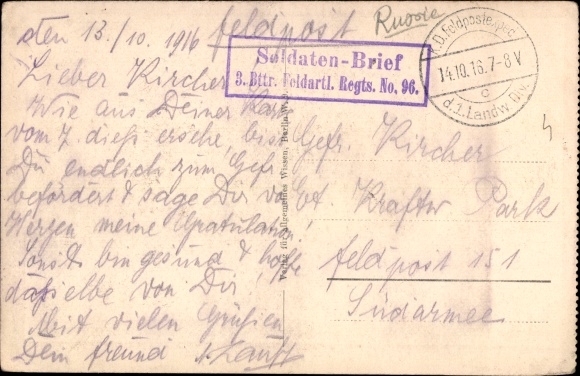 den 13./10. 1916 Feldpost
Russie
Soldaten-Brief
3. Bttr. Feldartl. Regts. No. 96.
K.D. Feldpostexped.
14.10.16. 7-8 V
c
d. 1. Landw. Div.
Lieber Kircher
Wie aus Deiner Kart
vom 7. dieß ersehe, bist
Du endlich zum Gefr.
befördert & sage Dir von
Herzen meine Gratulation!
Sonst bin gesund & hoffe
dasselbe von Dir
Mit vielen Grüßen
Dein freund
Verlag für Allgemeines Wissen, Berlin W.
Gefr. Kircher
Et. Kraftw Park
Feldpost 151
Südarmee
4